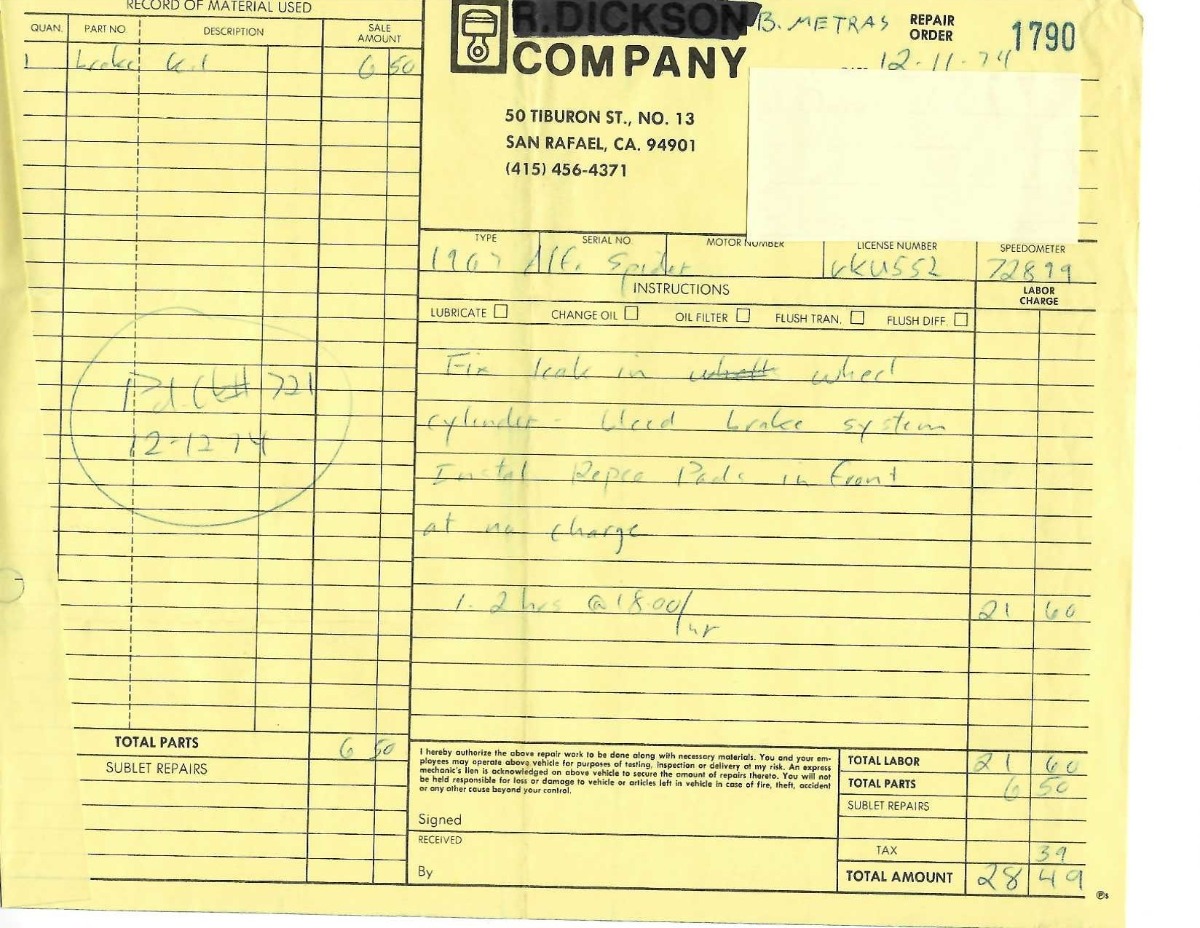 RECORD OF MATERIAL USED
QUAN. PART NO. DESCRIPTION SALE AMOUNT
1 brake kit 6 50
Pd. Ck# 1721
12-12-74
TOTAL PARTS 6 50
SUBLET REPAIRS
R. DICKSON B. METRAS
COMPANY
REPAIR ORDER 1790
12-11-74
50 TIBURON ST., NO. 13
SAN RAFAEL, CA. 94901
(415) 456-4371
TYPE SERIAL NO. MOTOR NUMBER LICENSE NUMBER SPEEDOMETER
1967 Alfa Spider 72899
INSTRUCTIONS LABOR CHARGE
LUBRICATE CHANGE OIL OIL FILTER FLUSH TRAN. FLUSH DIFF.
Fix leak in wheel
cylinder - bleed brake system
Instal Repco Pads in front
at no charge
1.2 hrs @ 18.00/hr 21 60
I hereby authorize the above repair work to be done along with necessary materials. You and your em-
ployees may operate above vehicle for purposes of testing, inspection or delivery at my risk. An express
mechanic's lien is acknowledged on above vehicle to secure the amount of repairs thereto. You will not
be held responsible for loss or damage to vehicle or articles left in vehicle in case of fire, theft, accident
or any other cause beyond your control.
Signed
RECEIVED
By
TOTAL LABOR 21 60
TOTAL PARTS 6 50
SUBLET REPAIRS
TAX 39
TOTAL AMOUNT 28 49